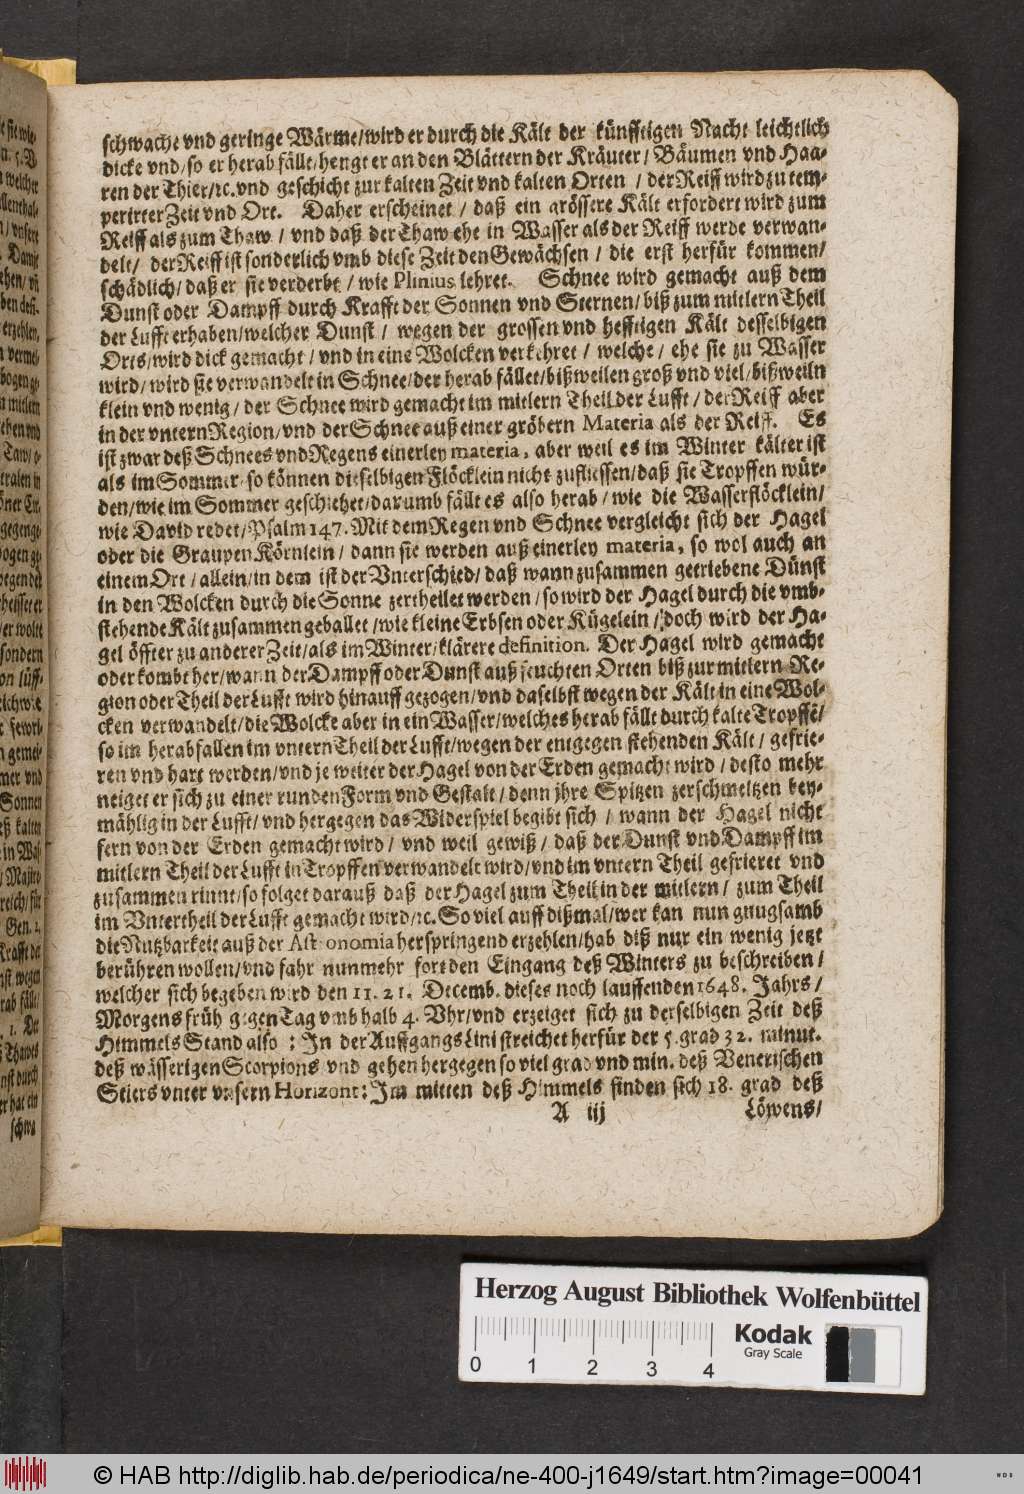 schwache vnd geringe Wärme/wird er durch die Kält der künfftigen Nacht leichtlich
dicke vnd/so er herab fället/hengt er an den Blättern der Kräuter/ Bäumen vnd Haa-
ren der Thier/ꝛc.vnd geschicht zur kalten Zeit vnd kalten Orten / der Reiff wird zu tem-
perirter Zeit vnd Ort. Daher erscheinet / daß ein grössere Kält erfordert wird zum
Reiff als zum Thaw / vnd daß der Thaw ehe in Wasser als der Reiff werde verwan-
delt/ der Reiff ist sonderlich vmb diese Zeit den Gewächsen / die erst herfür kommen/
schädlich/daß er sie verderbt / wie Plinius lehret. Schnee wird gemacht auß dem
Dunst oder Dampff durch Krafft der Sonnen vnd Sternen/ biß zum mitlern Theil
der Lufft erhaben/welcher Dunst / wegen der grossen vnd hefftigen Kält desselbigen
Orts/wird dick gemacht / vnd in eine Wolcken verkehret / welche / ehe sie zu Wasser
wird/wird sie verwandelt in Schnee/der herab fället/bißweilen groß vnd viel/bißweiln
klein vnd wenig / der Schnee wird gemacht im mitlern Theil der Lufft / der Reiff aber
in der vntern Region/vnd der Schnee auß einer gröbern Materia als der Reiff. Es
ist zwar deß Schnees vnd Regens einerley materia, aber weil es im Winter kälter ist
als im Sommer/so können dieselbigen Flöcklein nicht zufliessen/daß sie Tropffen wür-
den/wie im Sommer geschiehet/darumb fällt es also herab / wie die Wasserflöcklein/
wie David redet/Psalm 147. Mit dem Regen vnd Schnee vergleicht sich der Hagel
oder die Graupen Körnlein / dann sie werden auß einerley materia, so wol auch an
einem Ort / allein/in dem ist der Vnterschied/ daß wann zusammen getriebene Dünst
in den Wolcken durch die Sonne zertheilet werden / so wird der Hagel durch die vmb-
stehende Kält zusammen geballet /wie kleine Erbsen oder Kügelein / doch wird der Ha-
gel öffter zu anderer Zeit/als im Winter/klärere definition. Der Hagel wird gemacht
oder kombt her/wann der Dampff oder Dunst auß feuchten Orten biß zur mitlern Re-
gion oder Theil der Lufft wird hinauff gezogen/vnd daselbst wegen der Kält in eine Wol-
cken verwandelt/die Wolcke aber in ein Wasser/welches herab fällt durch kalte Tropffē/
so im herabfallen im vntern Theil der Lufft/wegen der entgegen stehenden Kält / gefrie-
ren vnd hart werden/vnd je weiter der Hagel von der Erden gemacht wird / desto mehr
neiget er sich zu einer runden Form vnd Gestalt / denn jhre Spitzen zerschmeltzen bey-
mählig in der Lufft/ vnd hergegen das Widerspiel begibt sich / wann der Hagel nicht
fern von der Erden gemacht wird / vnd weil gewiß / daß der Dunst vnd Dampff im
mitlern Theil der Lufft in Tropffen verwandelt wird/vnd im vntern Theil gefrieret vnd
zusammen rinnt/so folget darauß daß der Hagel zum Theil in der mitlern / zum Theil
im Vntertheil der Lufft gemacht wird/ꝛc. So viel auff dißmal/wer kan nun gnugsamb
die Nutzbarkeit auß der Astronomia herspringend erzehlen/hab diß nur ein wenig jetzt
berühren wollen/vnd fahr nunmehr fort den Eingang deß Winters zu beschreiben /
welcher sich begeben wird den 11. 21. Decemb. dieses noch lauffenden 1648. Jahrs /
Morgens früh gegen Tag vmb halb 4. Vhr/vnd erzeiget sich zu derselbigen Zeit deß
Himmels Stand also : In der Auffgangs Lini streichet herfür der 5. grad 32. minut.
deß wässerigen Scorpions vnd gehen hergegen so viel grad vnd min. deß Venerischen
Stiers vnter vnsern Horizont: Im mitten deß Himmels finden sich 18. grad deß
A iij Löwens/
Herzog August Bibliothek Wolfenbüttel
Kodak
Gray Scale
0 1 2 3 4
© HAB http://diglib.hab.de/periodica/ne-400-j1649/start.htm?image=00041